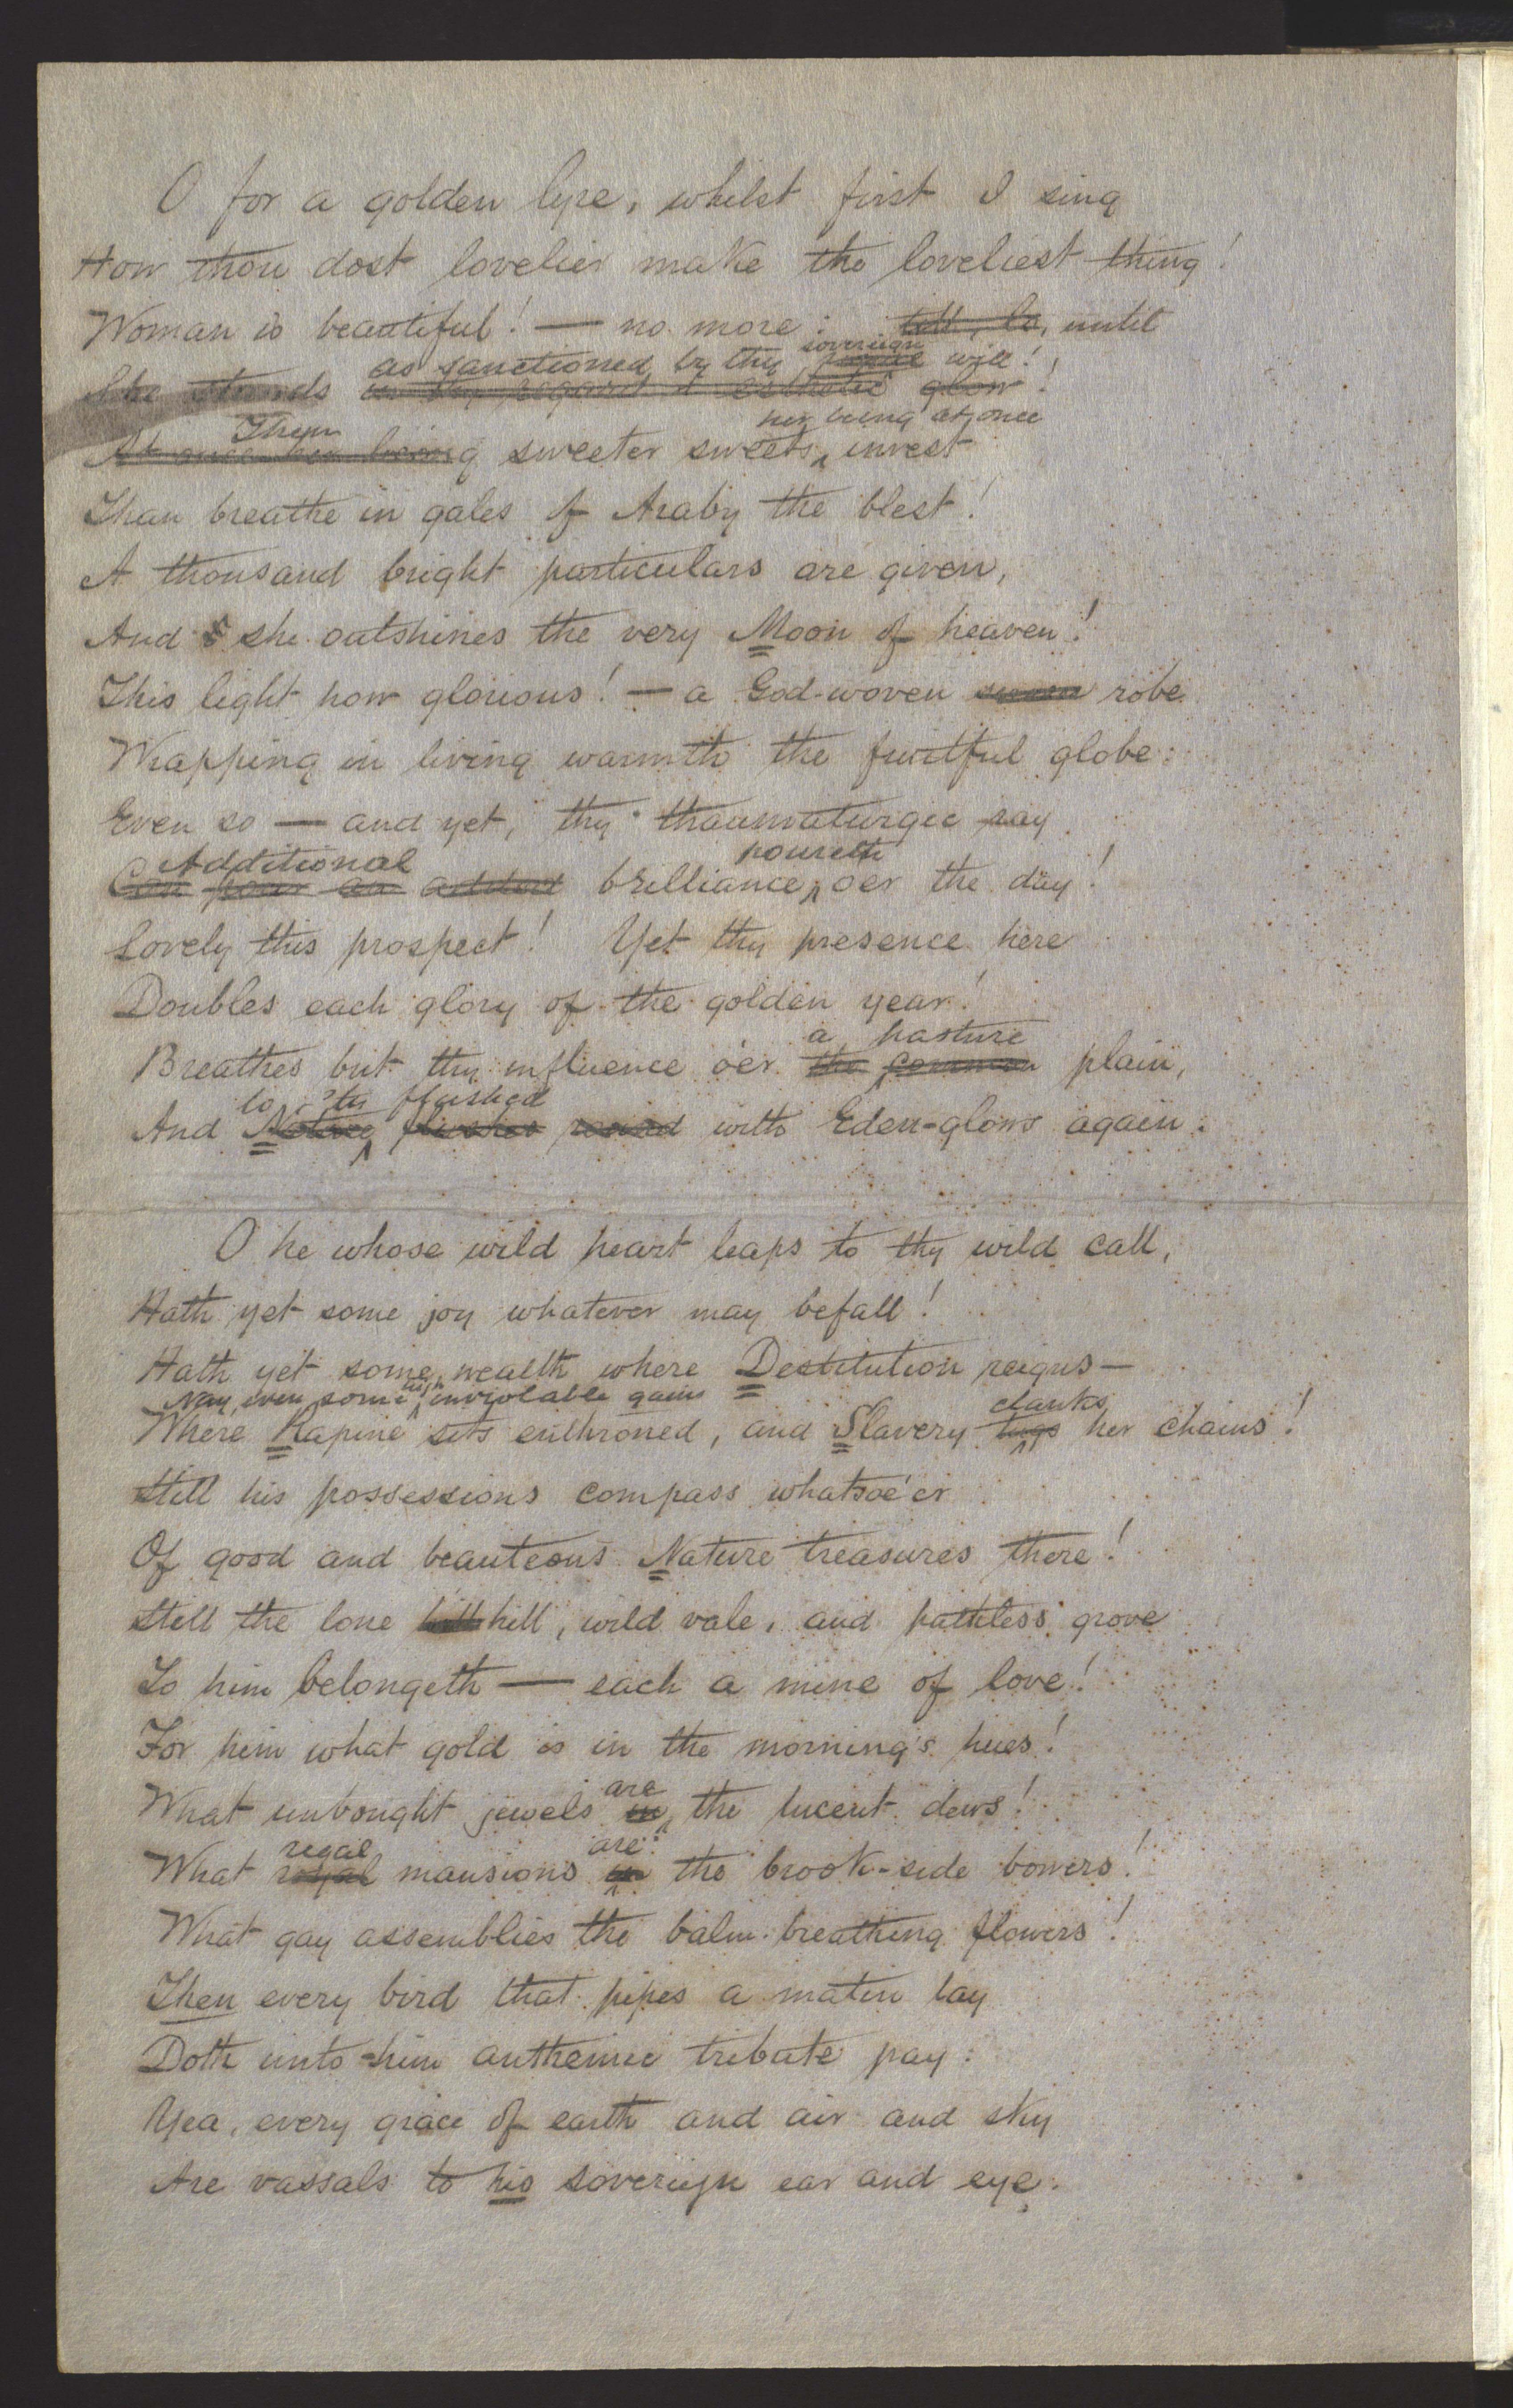 O for a golden lyre, whilst first I sing
How thou dost lovelier make the loveliest thing!
Woman is beautiful! — no more: till, lo, until
as sanctioned by thy sovereign will!
She stands in thy regard a esthetic glow!
Then her being at once
At once her being sweeter sweets invest
Than breathe in gales of Araby the blest!
A thousand bright particulars are given,
And she outshines the very Moon of heaven!
This light how glorious! — a God-woven robe
Wrapping in living warmth the fruitful globe:
Even so — and yet, thy thaumaturgic ray
Additional poureth
Can pour an added brilliance, oer the day!
Lovely this prospect! Yet thy presence here
Doubles each glory of the golden year!
a pasture
Breathes but thy influence o'er the common plain,
lo, 'tis flushed
And Nature flushes round with Eden-glows again.
O he whose wild heart leaps to thy wild call,
Hath yet some joy whatever may befall!
Hath yet some wealth where Destitution reigns—
Nay, even some high inviolable gains
clanks
Where Rapine sits enthroned, and Slavery tugs her chains!
Still his possessions compass whatsoe'er
Of good and beauteous Nature treasures there!
Still the lone hill hill, wild vale, and pathless grove
To him belongeth — each a mine of love!
For him what gold is in the morning's hues!
are
What unbought jewels in, the lucent dews!
regal are
What royal mansions in the brook-side bowers!
What gay assemblies the balm-breathing flowers!
Then every bird that pipes a matin lay
Doth unto him anthemic tribute pay:
Yea, every grace of earth and air and sky
Are vassals to his sovereign ear and eye.